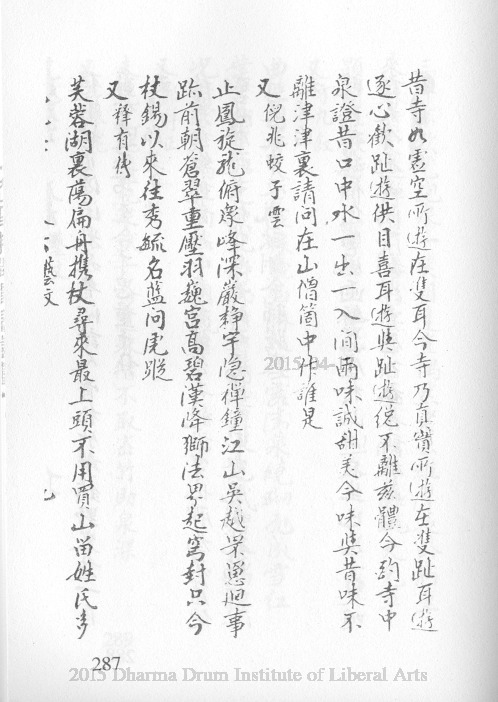 昔寺如憲空所遊在雙耳今寺乃真賞所遊在雙趾耳遊
逐心歡趾遊供目喜耳遊與趾遊總不離茲體今酌寺中
泉證昔口中水一出一入間兩味誠甜美今味與昔味不
離津津裏請問在山僧箇中作誰是
又 倪兆蛟 子雲
止鳳旋龍俯眾峰深嚴静宇隱禪鐘江山吳越梁憑迴事
跡前朝蒼翠重壓羽巍宮高碧漢降獅法界起窩封只今
杖錫以來往秀毓名藍问虎蹤
又 釋有傳
芙蓉湖裏蕩扁舟携杖尋來最上頭不用買山留姓氏多
藝文
2015-04-
287
2015 Dharma Drum Institute of Liberal Arts